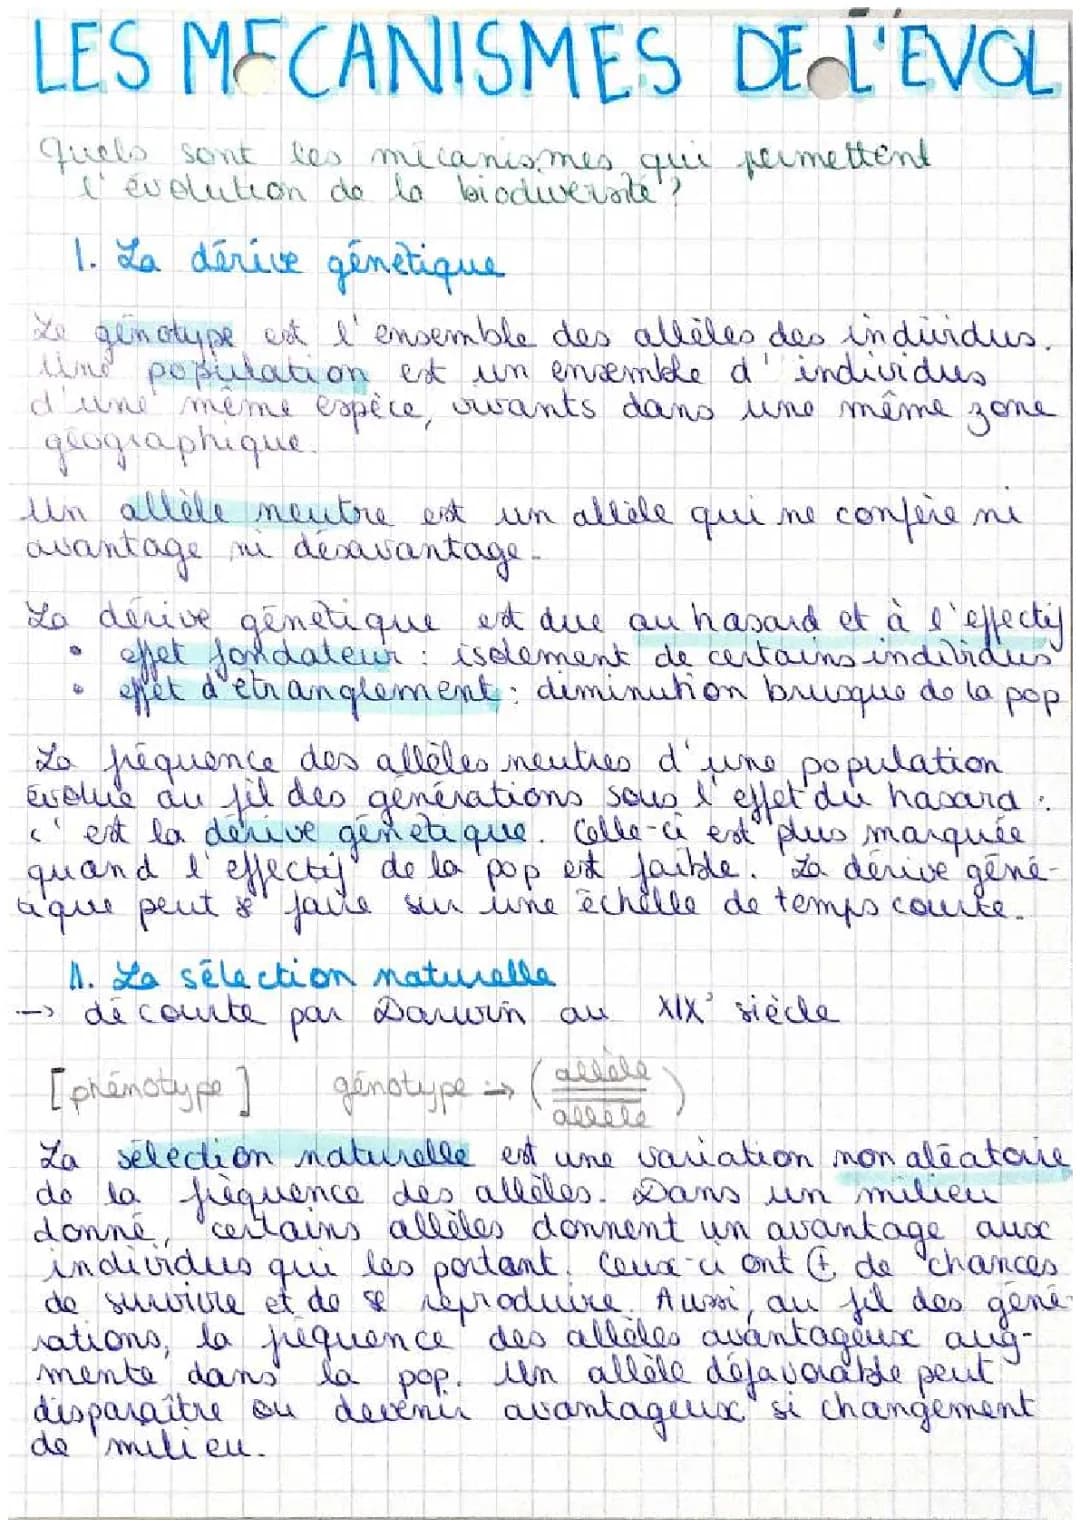 LES MECANISMES DE L'EVOL
Quels sont les mécanismes qui permettent
l'évolution de la biodiversité ?
1. La dérive génétique
Le génotype est l'ensemble des allèles des individus.
Une population est un ensemble d'individus
d'une même espèce, vivants dans une même zone
géographique.
Un allèle neutre est un allèle qui ne confère ni
avantage ni désavantage.
La dérive génétique est due au hasard et à l'effectif
• effet fondateur : isolement de certains individus
• effet d'étranglement : diminution brusque de la pop
La fréquence des allèles neutres d'une population
évolue au fil des générations sous l'effet du hasard :
c'est la dérive génétique. Celle-ci est plus marquée
quand l'effectif de la pop est faible. La dérive géné-
tique peut se faire sur une échelle de temps courte.
II. La sélection naturelle
→ décourte par Darwin au XIX° siècle
[phénotype] génotype → (allèle
allèle)
La sélection naturelle est une variation non aléatoire
de la fréquence des allèles. Dans un milieu
donné, certains allèles donnent un avantage aux
individus qui les portent. Ceux-ci ont ⊕ de chances
de survivre et de se reproduire. Aussi, au fil des géné-
rations, la fréquence des allèles avantageux aug-
mente dans la pop. Un allèle défavorable peut
disparaître ou devenir avantageux si changement
de milieu.